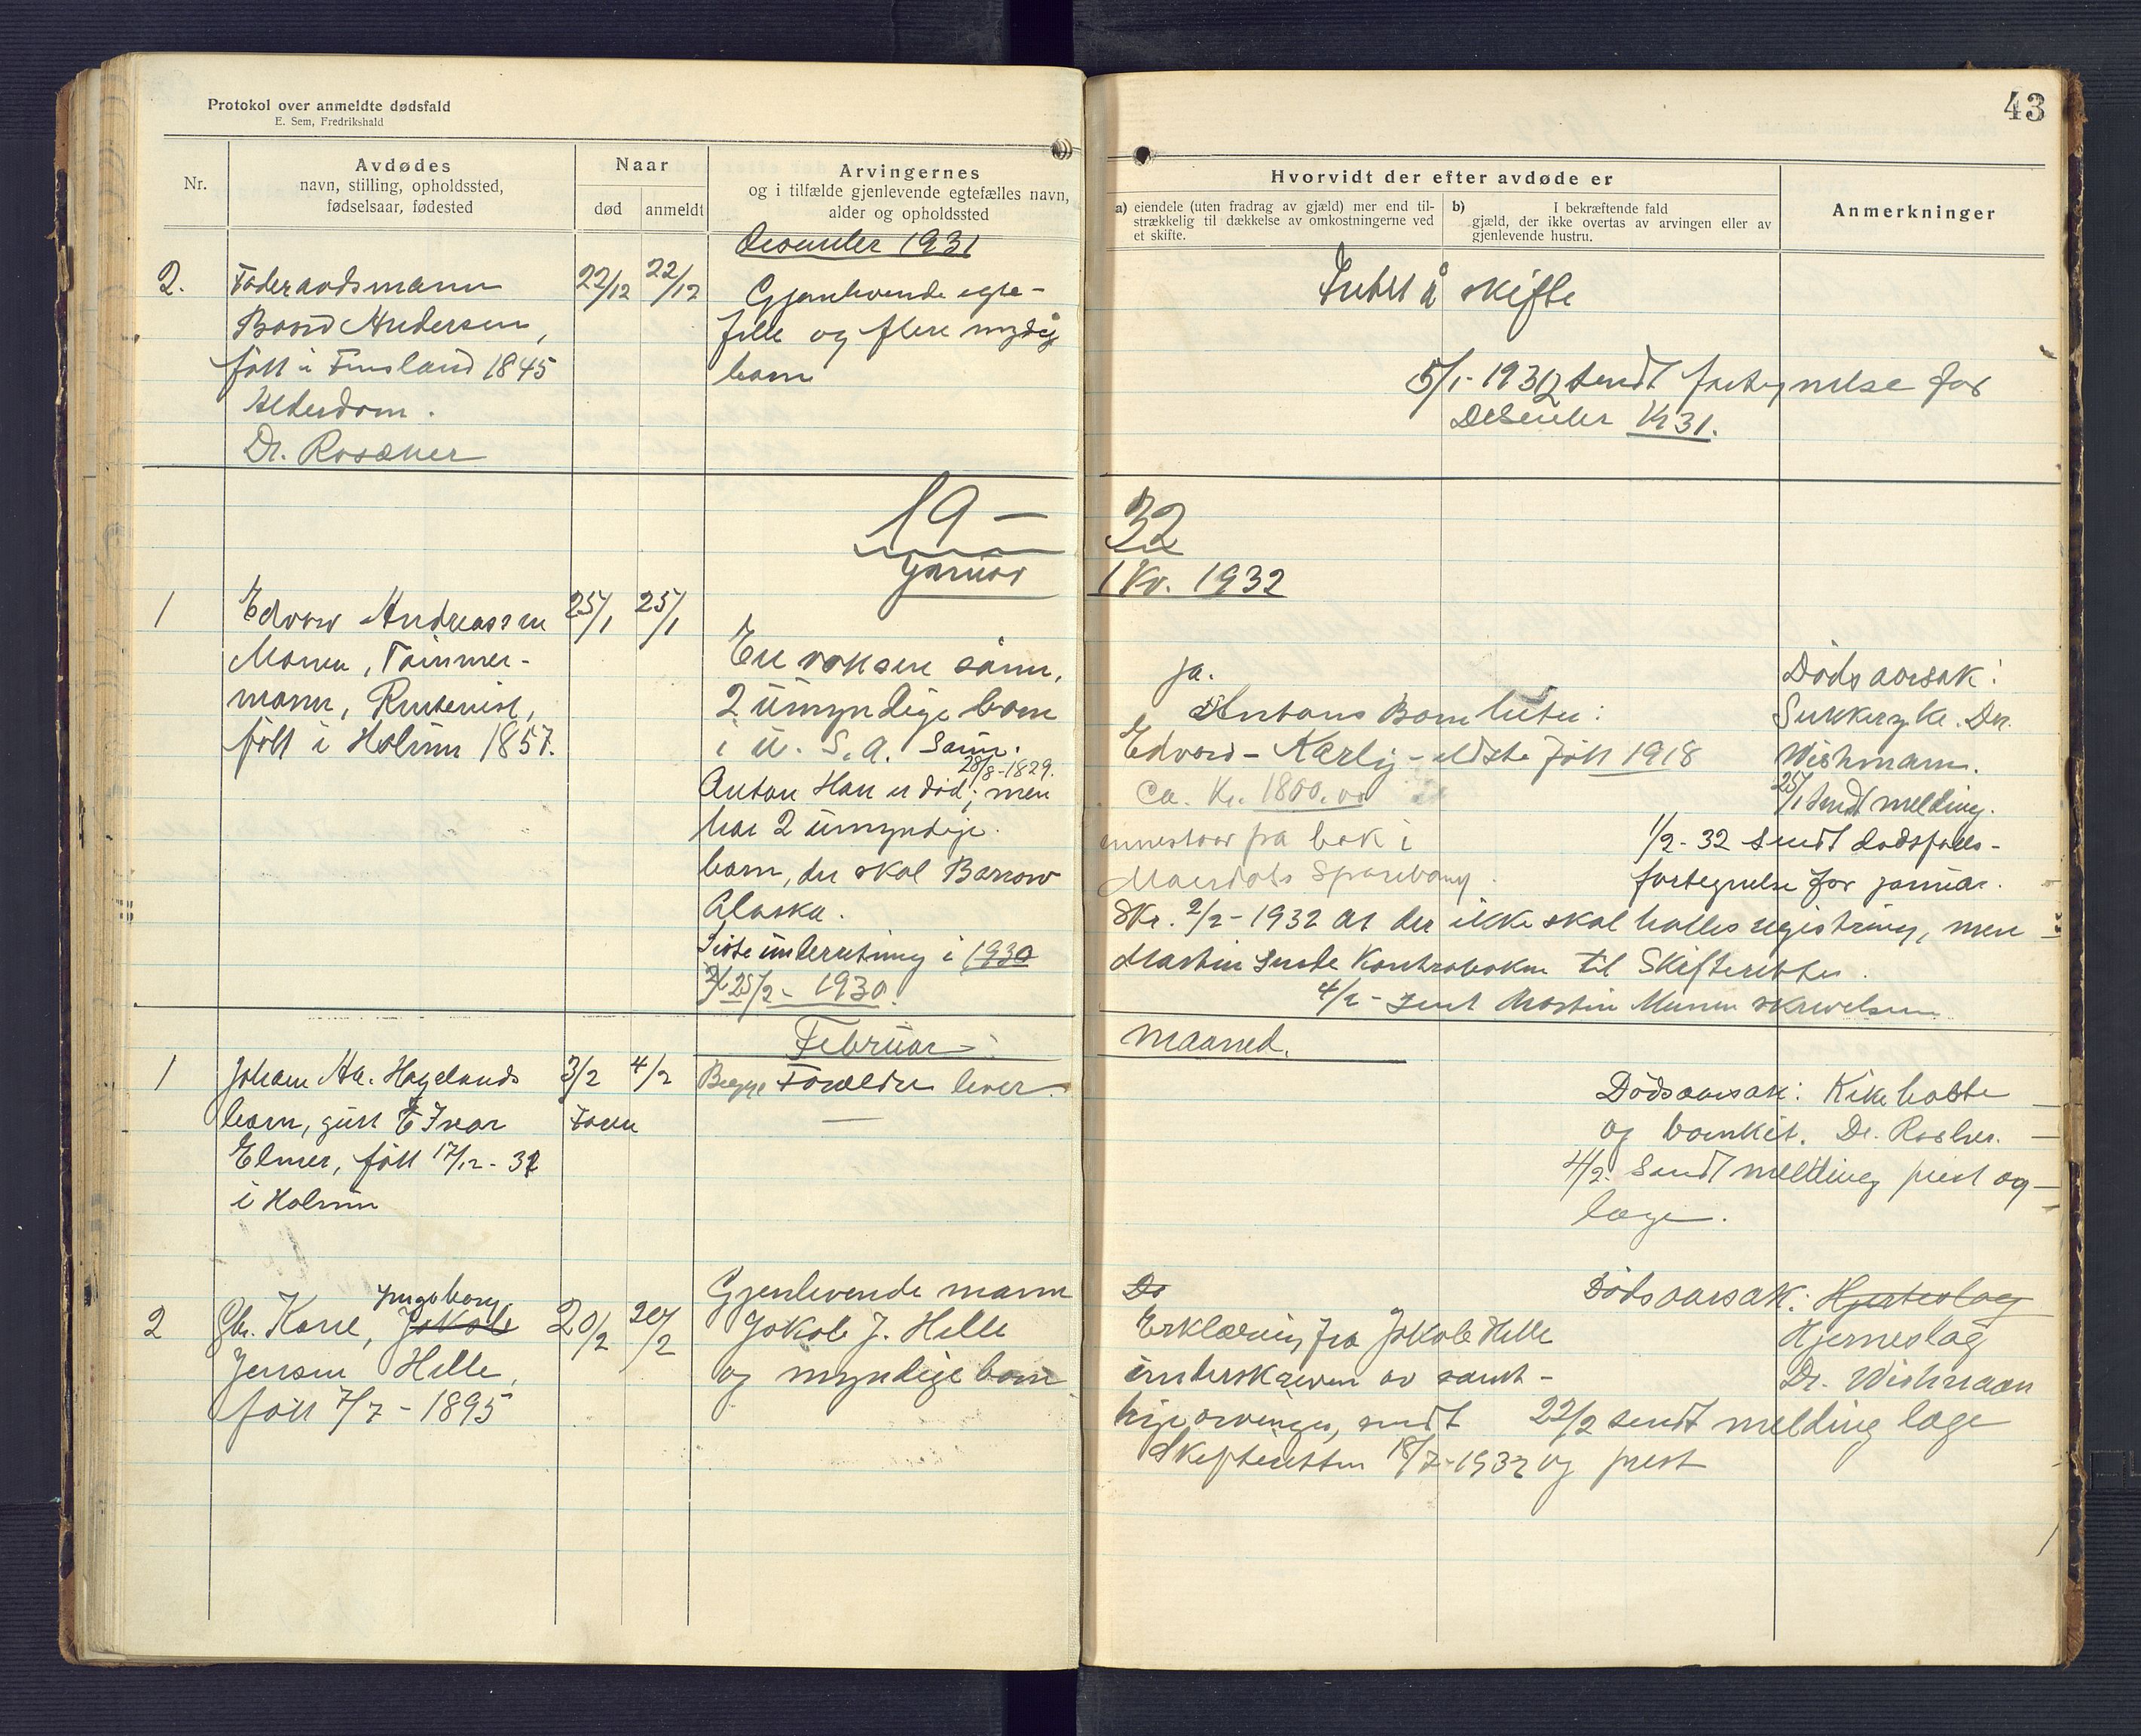 Protokol over anmeldte dødsfald
E. Sem, Fredrikshald
Nr.
Avdødes
navn, stilling, opholdssted,
fødselsaar, fødested
Naar
død
anmeldt
Arvingernes
og i tilfælde gjenlevende egtefælles navn,
alder og opholdssted
December 1931
2.
Føderaadsmann
Andersen,
født i Finsland 1845
Alderdom.
Dr. Rosæner
22/12
22/12
Gjenlevende egte-
felle og flere myndig
barn
19 –
Januar
1
Edvard Andreassen
Monen, Tømmer-
mann, Rentenist,
født i Holum 1857.
25/1
25/1
En voksen sønn,
2 umyndige barn
i U. S. A. Sønn.
28/8-1829.
Anton Han er død; men
har 2 umyndige
barn, der skal Barrow
Alaska.
Siste underretning i 1930
25/2 - 1930.
Februar
1
Johan Aa. Hagelands
barn, gutt Ivar
Elmer, født 17/12-31
i Holum
3/2
4/2
Begge Forældre lever.
2
Ingeborg
Gbr. Kone, Jakob
Jensen Helle,
født 7/7 - 1895
20/2
20/2
Gjenlevende mann
Jakob J. Helle
og myndige barn
43
Hvorvidt der efter avdøde er
a) eiendele (uten fradrag av gjæld) mer end til-
strækkelig til dækkelse av omkostningerne ved
et skifte.
b) I bekræftende fald
gjæld, der ikke overtas av arvingen eller av
gjenlevende hustru.
Anmerkninger
Intet å skifte
5/1-1932 sendt fortegnelse for
Desember 1931.
32
1 Kv. 1932
ja.
Antons Barn heter:
Edvard - Karly - eldste født 1918
Ca. Kr. 1800.00
innestaar på bok i
Sparebank.
Dødsaarsak:
Sukkersyke. Dr.
Wishmann.
25/1 sendt melding.
1/2-32 sendt dødsfalls-
fortegnelse for januar.
Skr. 2/2-1932 at der ikke skal holdes registrering, men
Martin sende Kontraboken til Skifteretten.
4/2- sent Martin Monen skrivelsen
maaned.
Dødsaarsak: Kikehoste
og bronkit. Dr.
4/2. Sendt melding prest og
læge.
Do
Erklæring fra Jakob Helle
underskreven av samt-
lige arvinger, sendt
Skifteretten 18/7-1932
Dødsaarsak: Hjerteslag
Hjerneslag
Dr. Wishmann
22/2 sendt melding læge
og prest